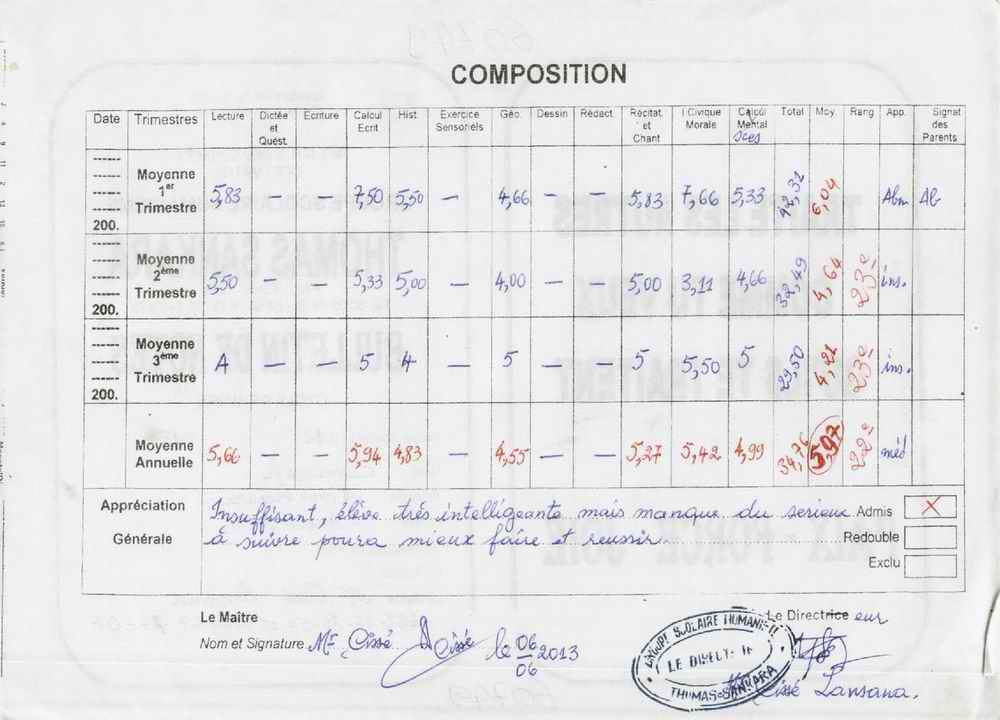 COMPOSITION
Date Trimestres Lecture Dictée et Quest. Ecriture Calcul Ecrit Hist. Exercice Sensoriels Géo. Dessin Rédact. Récitat. et Chant I.Civique Morale Calcul Mental Sces Total Moy. Rang App. Signat des Parents
Moyenne 1er Trimestre 200. 5,83 — — 7,50 5,50 — 4,66 — — 5,83 7,66 5,33 42,31 6,04 Abm Ab
Moyenne 2ème Trimestre 200. 5,50 — — 5,33 5,00 — 4,00 — — 5,00 3,11 4,66 32,49 4,64 23e ins.
Moyenne 3ème Trimestre 200. A — — 5 4 — 5 — — 5 5,50 5 29,50 4,21 23e ins.
Moyenne Annuelle 5,66 — — 5,94 4,83 — 4,55 — — 5,27 5,42 4,99 34,76 22e méd
Appréciation Générale
Insuffisant, élève très intelligeante mais manque du serieux Admis X
à suivre poura mieux faire et reussir. Redouble
Exclu
Le Maître Le Directrice eur
Nom et Signature Mr Cissé Cissé le 06/06 2013
GROUPE SCOLAIRE
LE DIRECTEUR
THOMAS SANKARA
Cissé Lansana.